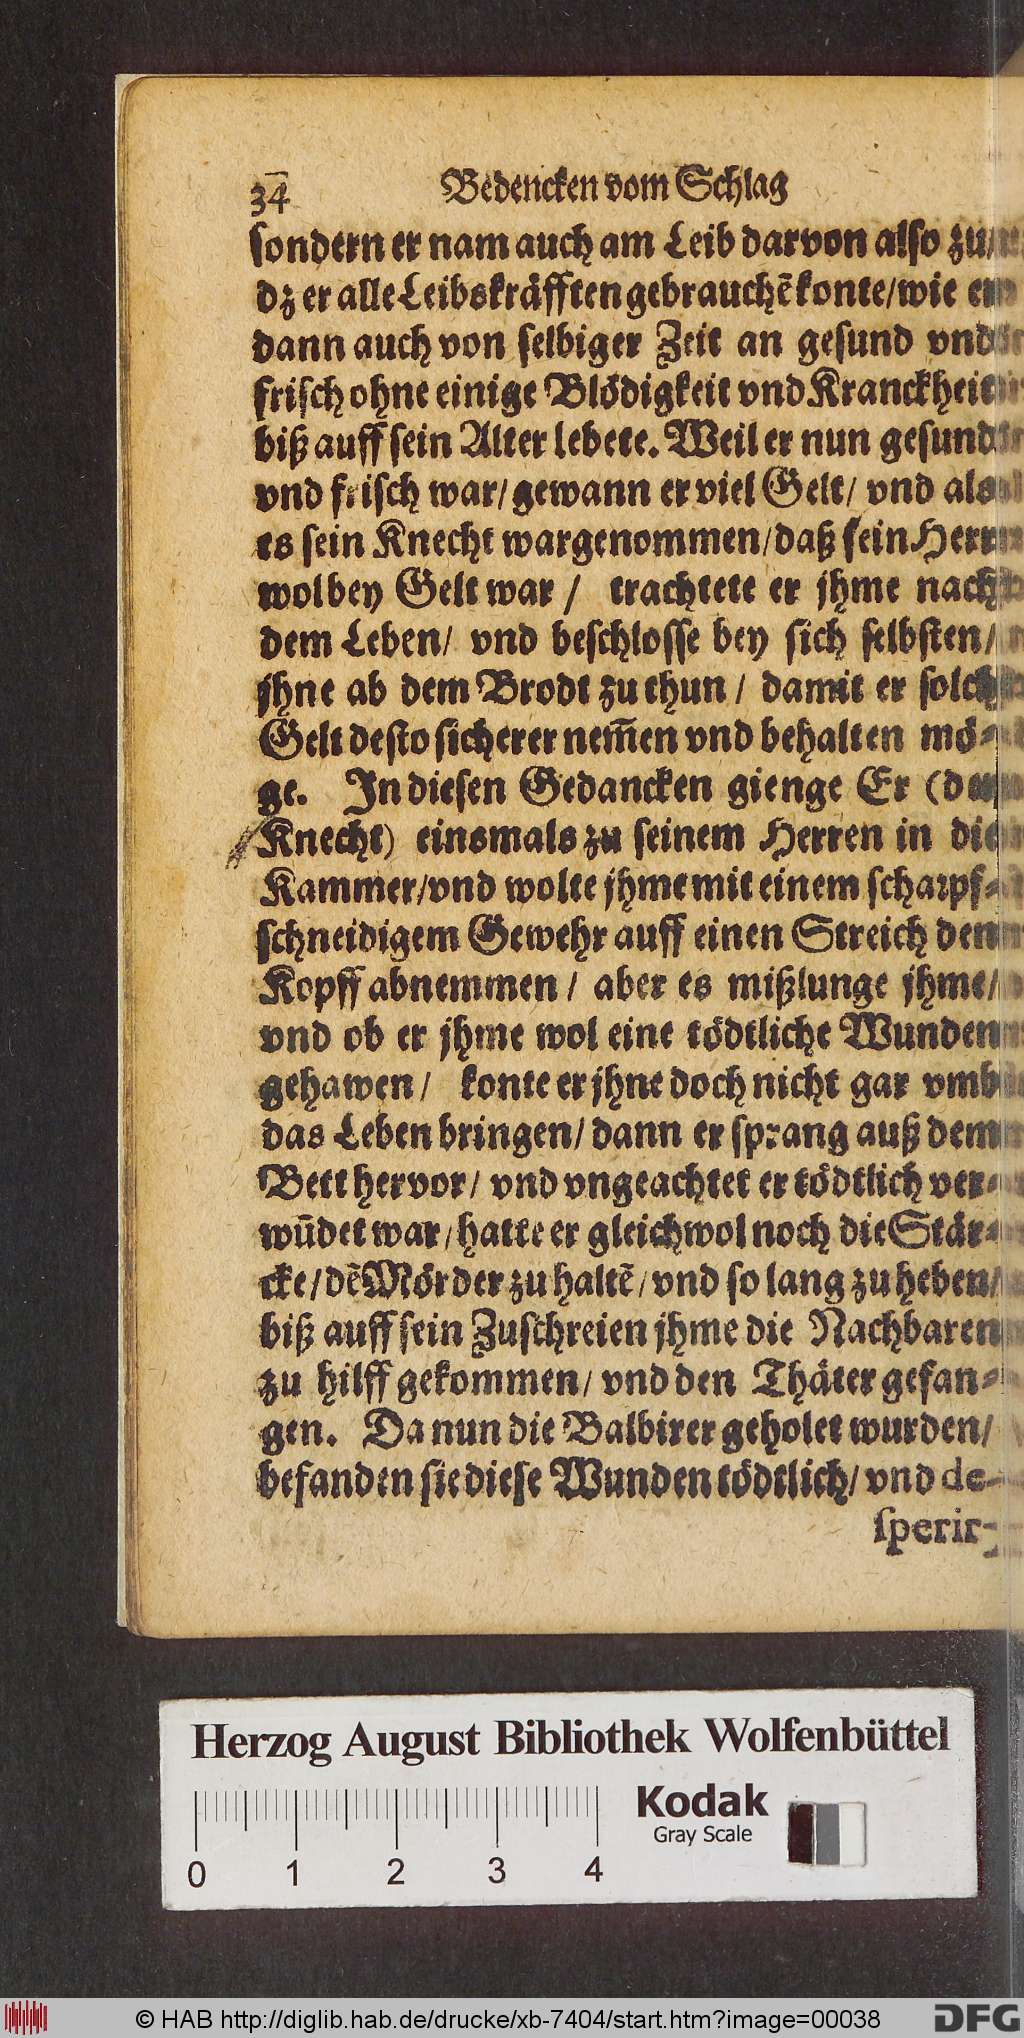 34 Bedencken vom Schlag
sondern er nam auch am Leib darvon also zu/
dz er alle Leibskräfften gebrauchẽ konte/wie er
dann auch von selbiger Zeit an gesund vnd
frisch ohne einige Blödigkeit vnd Kranckheit
biß auff sein Alter lebete. Weil er nun gesund
vnd frisch war/ gewann er viel Gelt/ vnd als
es sein Knecht wargenommen/daß sein Herr
wol bey Gelt war / trachtete er jhme nach
dem Leben/ vnd beschlosse bey sich selbsten/
jhne ab dem Brodt zu thun / damit er solch
Gelt desto sicherer nem̃en vnd behalten mö-
ge. In diesen Gedancken gienge Er (der
Knecht) einsmals zu seinem Herren in die
Kammer/vnd wolte jhme mit einem scharpf-
schneidigem Gewehr auff einen Streich den
Kopff abnemmen / aber es mißlunge jhme/
vnd ob er jhme wol eine tödtliche Wunden
gehawen / konte er jhne doch nicht gar vmb
das Leben bringen/ dann er sprang auß dem
Bett hervor / vnd vngeachtet er tödtlich ver-
wũdet war / hatte er gleichwol noch die Stär-
cke / dẽ Mörder zu haltẽ / vnd so lang zu heben/
biß auff sein Zuschreien jhme die Nachbaren
zu hilff gekommen/ vnd den Thäter gefan-
gen. Da nun die Balbirer geholet wurden/
befanden sie diese Wunden tödtlich/ vnd de-
sperir-
Herzog August Bibliothek Wolfenbüttel
0 1 2 3 4
Kodak
Gray Scale
© HAB http://diglib.hab.de/drucke/xb-7404/start.htm?image=00038
DFG